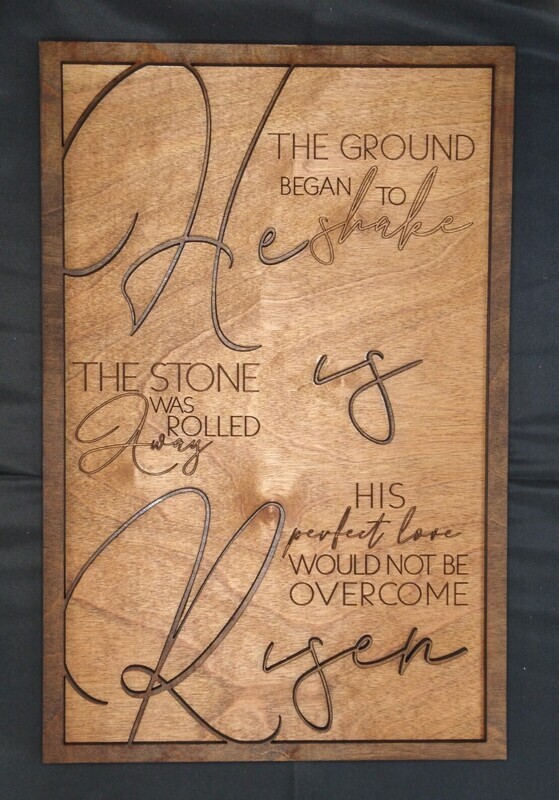 He
THE GROUND
BEGAN TO
shake
is
THE STONE
WAS
ROLLED
Away
HIS
perfect love
WOULD NOT BE
OVERCOME
Risen